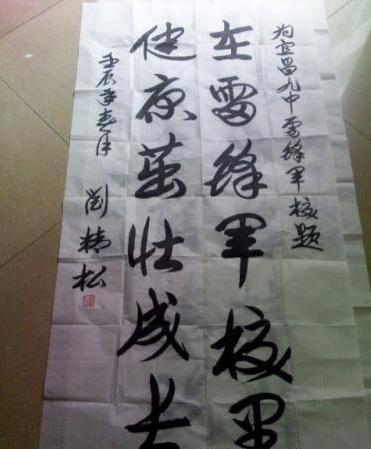 为宜昌九中雷锋军校题
在雷锋军校里
健康茁壮成长
壬辰年春月
精松